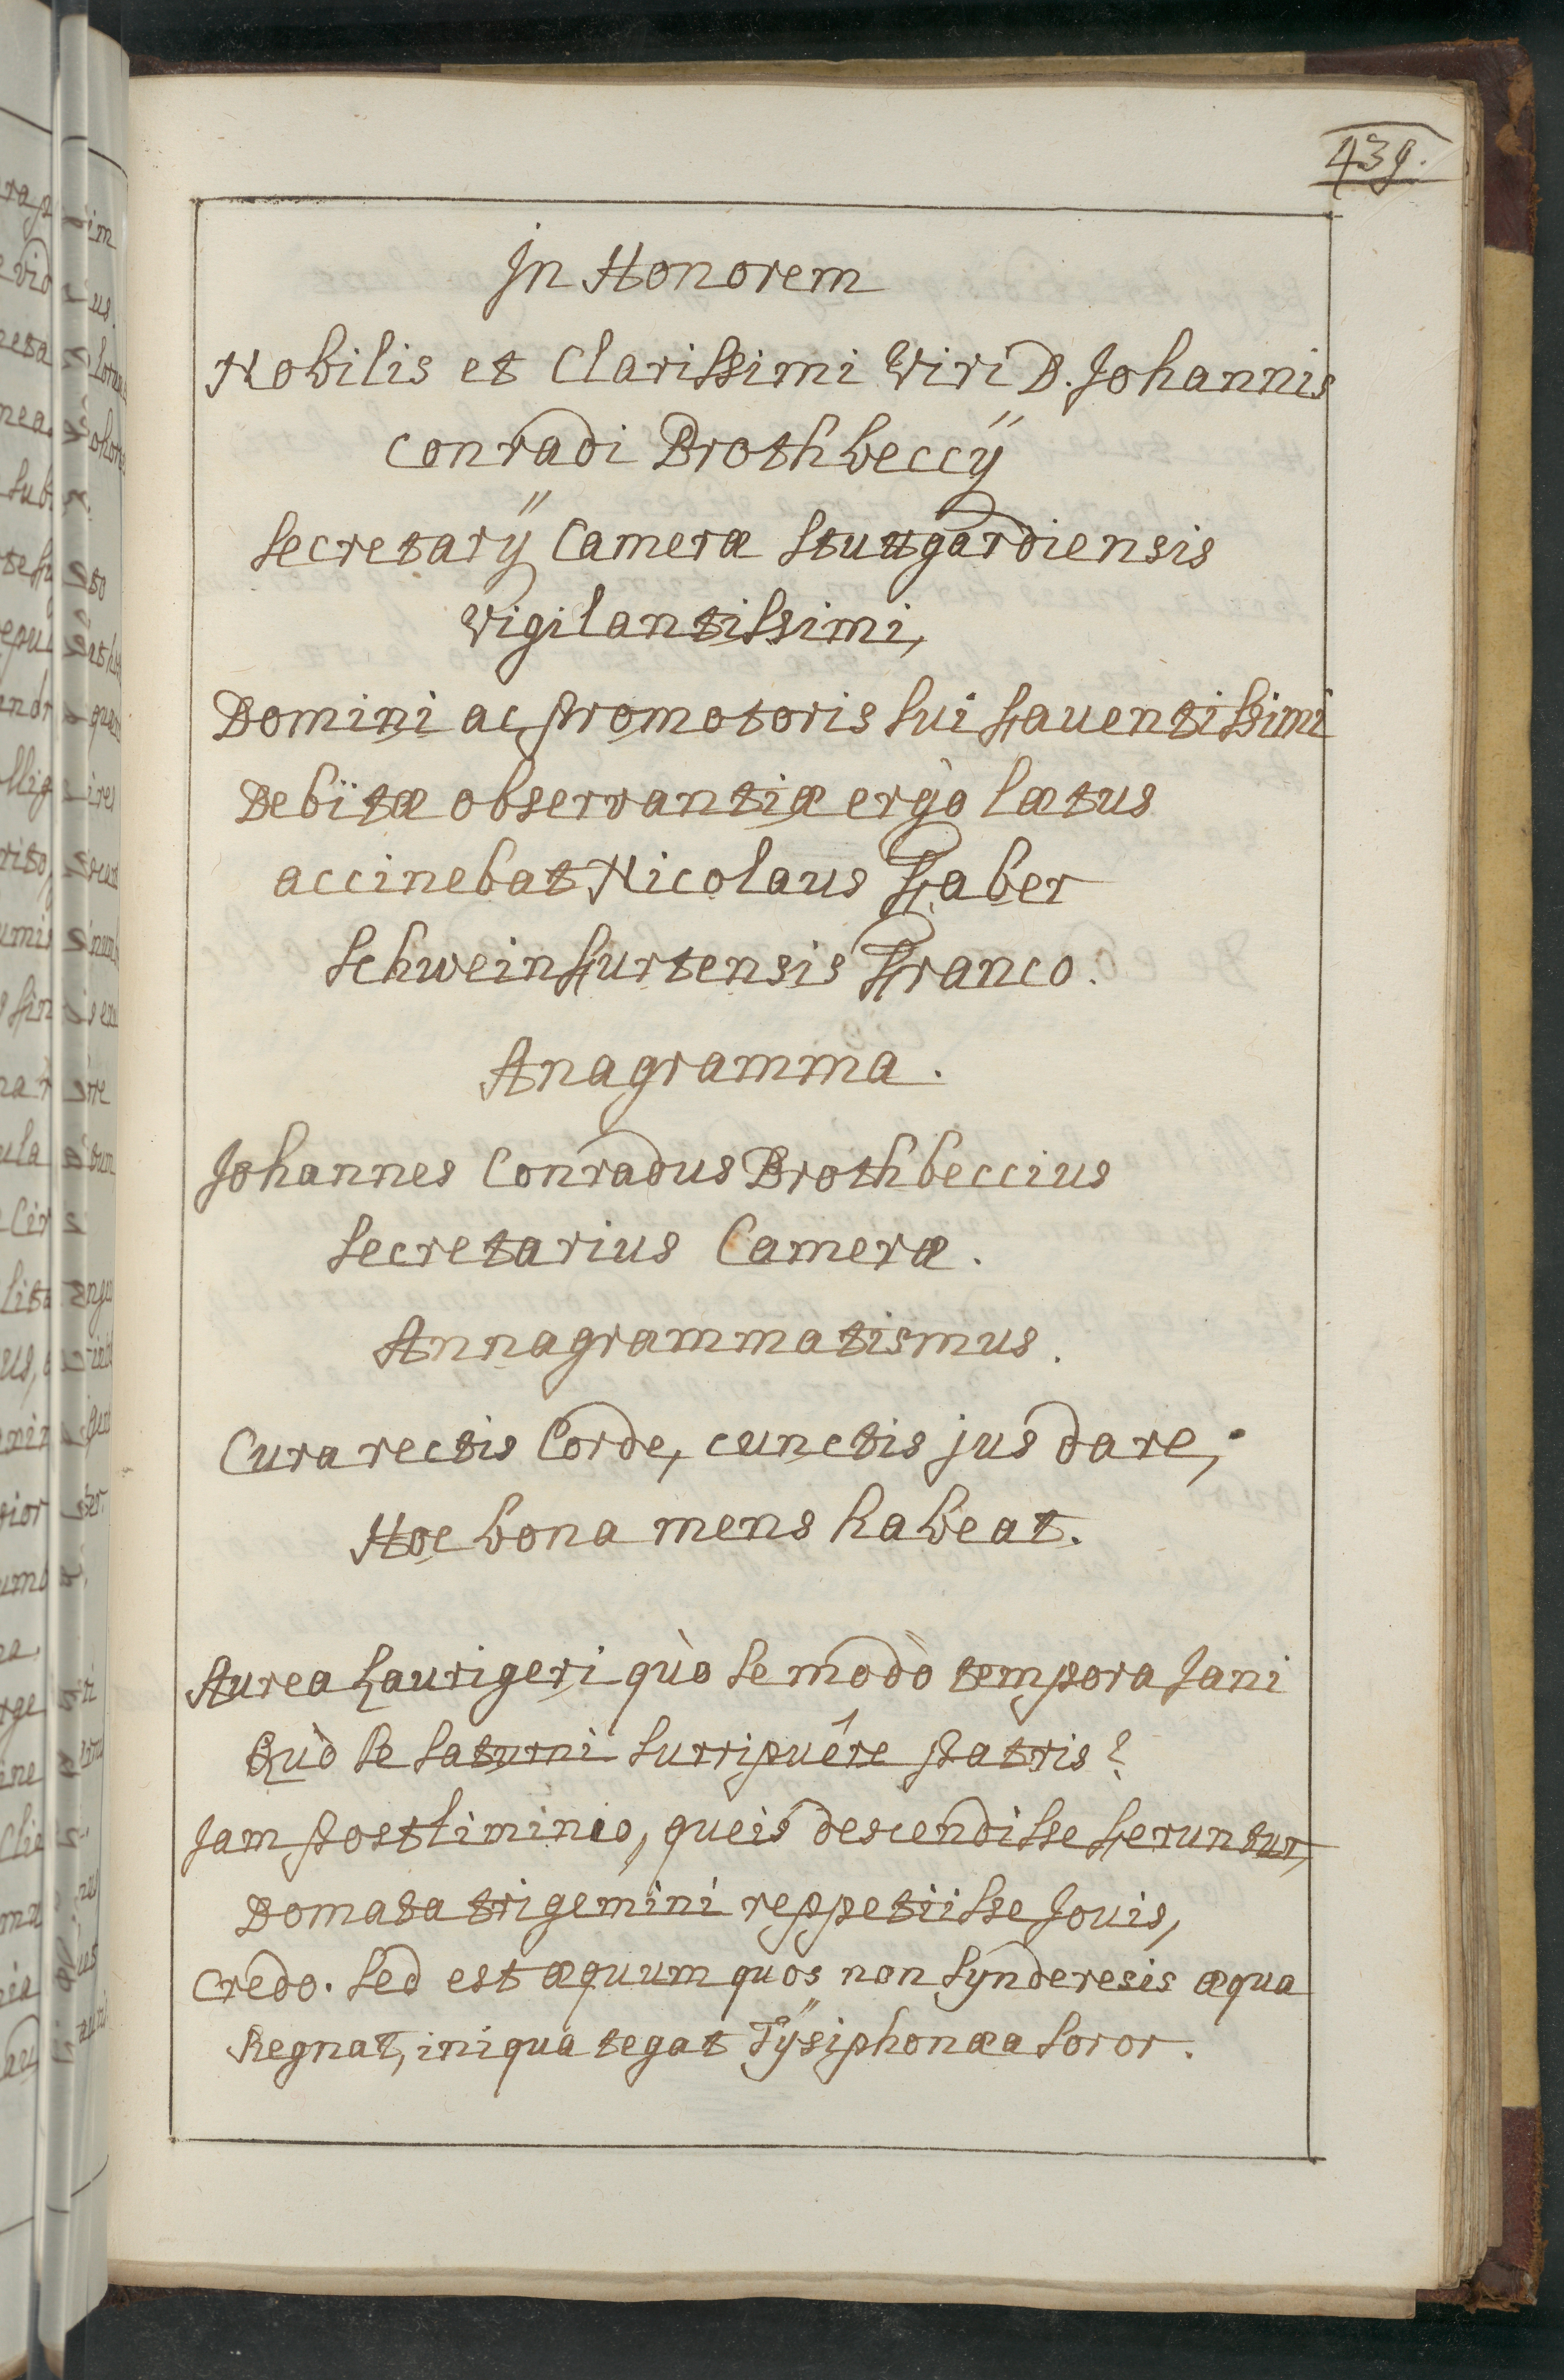 439.
In Honorem
Nobilis et Clarissimi Viri D. Johannis
Conradi Brothbeccÿ
Secretarÿ Cameræ Stuttgardiensis
Vigilantissimi,
Domini ac Promotoris sui Fauentissimi
Debitæ observantiæ ergò lætus
accinebat Nicolaus Faber
Schweinfurtensis Franco.
Anagramma.
Johannes Conradus Brothbeccius
Secretarius Cameræ.
Annagrammatismus.
Cura rectis Corde, cunctis jus dare,
Hoc bona mens habeat.
Aurea Laurigeri quò se modò tempora Jani
Quò se Saturni surripuêre Patris?
Jam Postliminio, queis descendisse feruntur,
Domata trigemini reppetiisse Jouis,
Credo. Sed est æquum quos non Synderesis æqua
Regnat, iniqua tegat Tÿsiphonæa Soror.